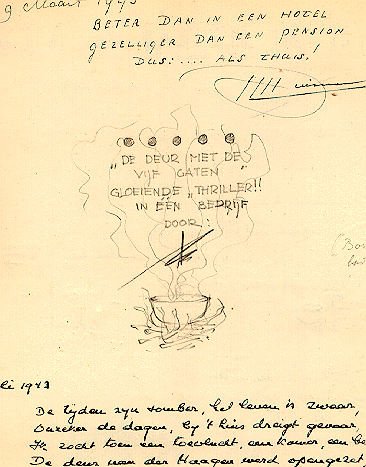 9 Maart 1943
BETER DAN IN EEN HOTEL
GEZELLIGER DAN EEN PENSION
DUS: .... ALS THUIS!
„DE DEUR MET DE
VIJF GATEN"
GLOEIENDE „THRILLER!!
IN ÉÉN BEDRIJF
DOOR:
li 1943
De tijden zijn somber, het leven is zwaar,
Onzeker de dagen, bij 't huis dreigt gevaar,
Ik zocht toen een toevlucht, een kamer, een be
De deur van der Haagen werd opengezet